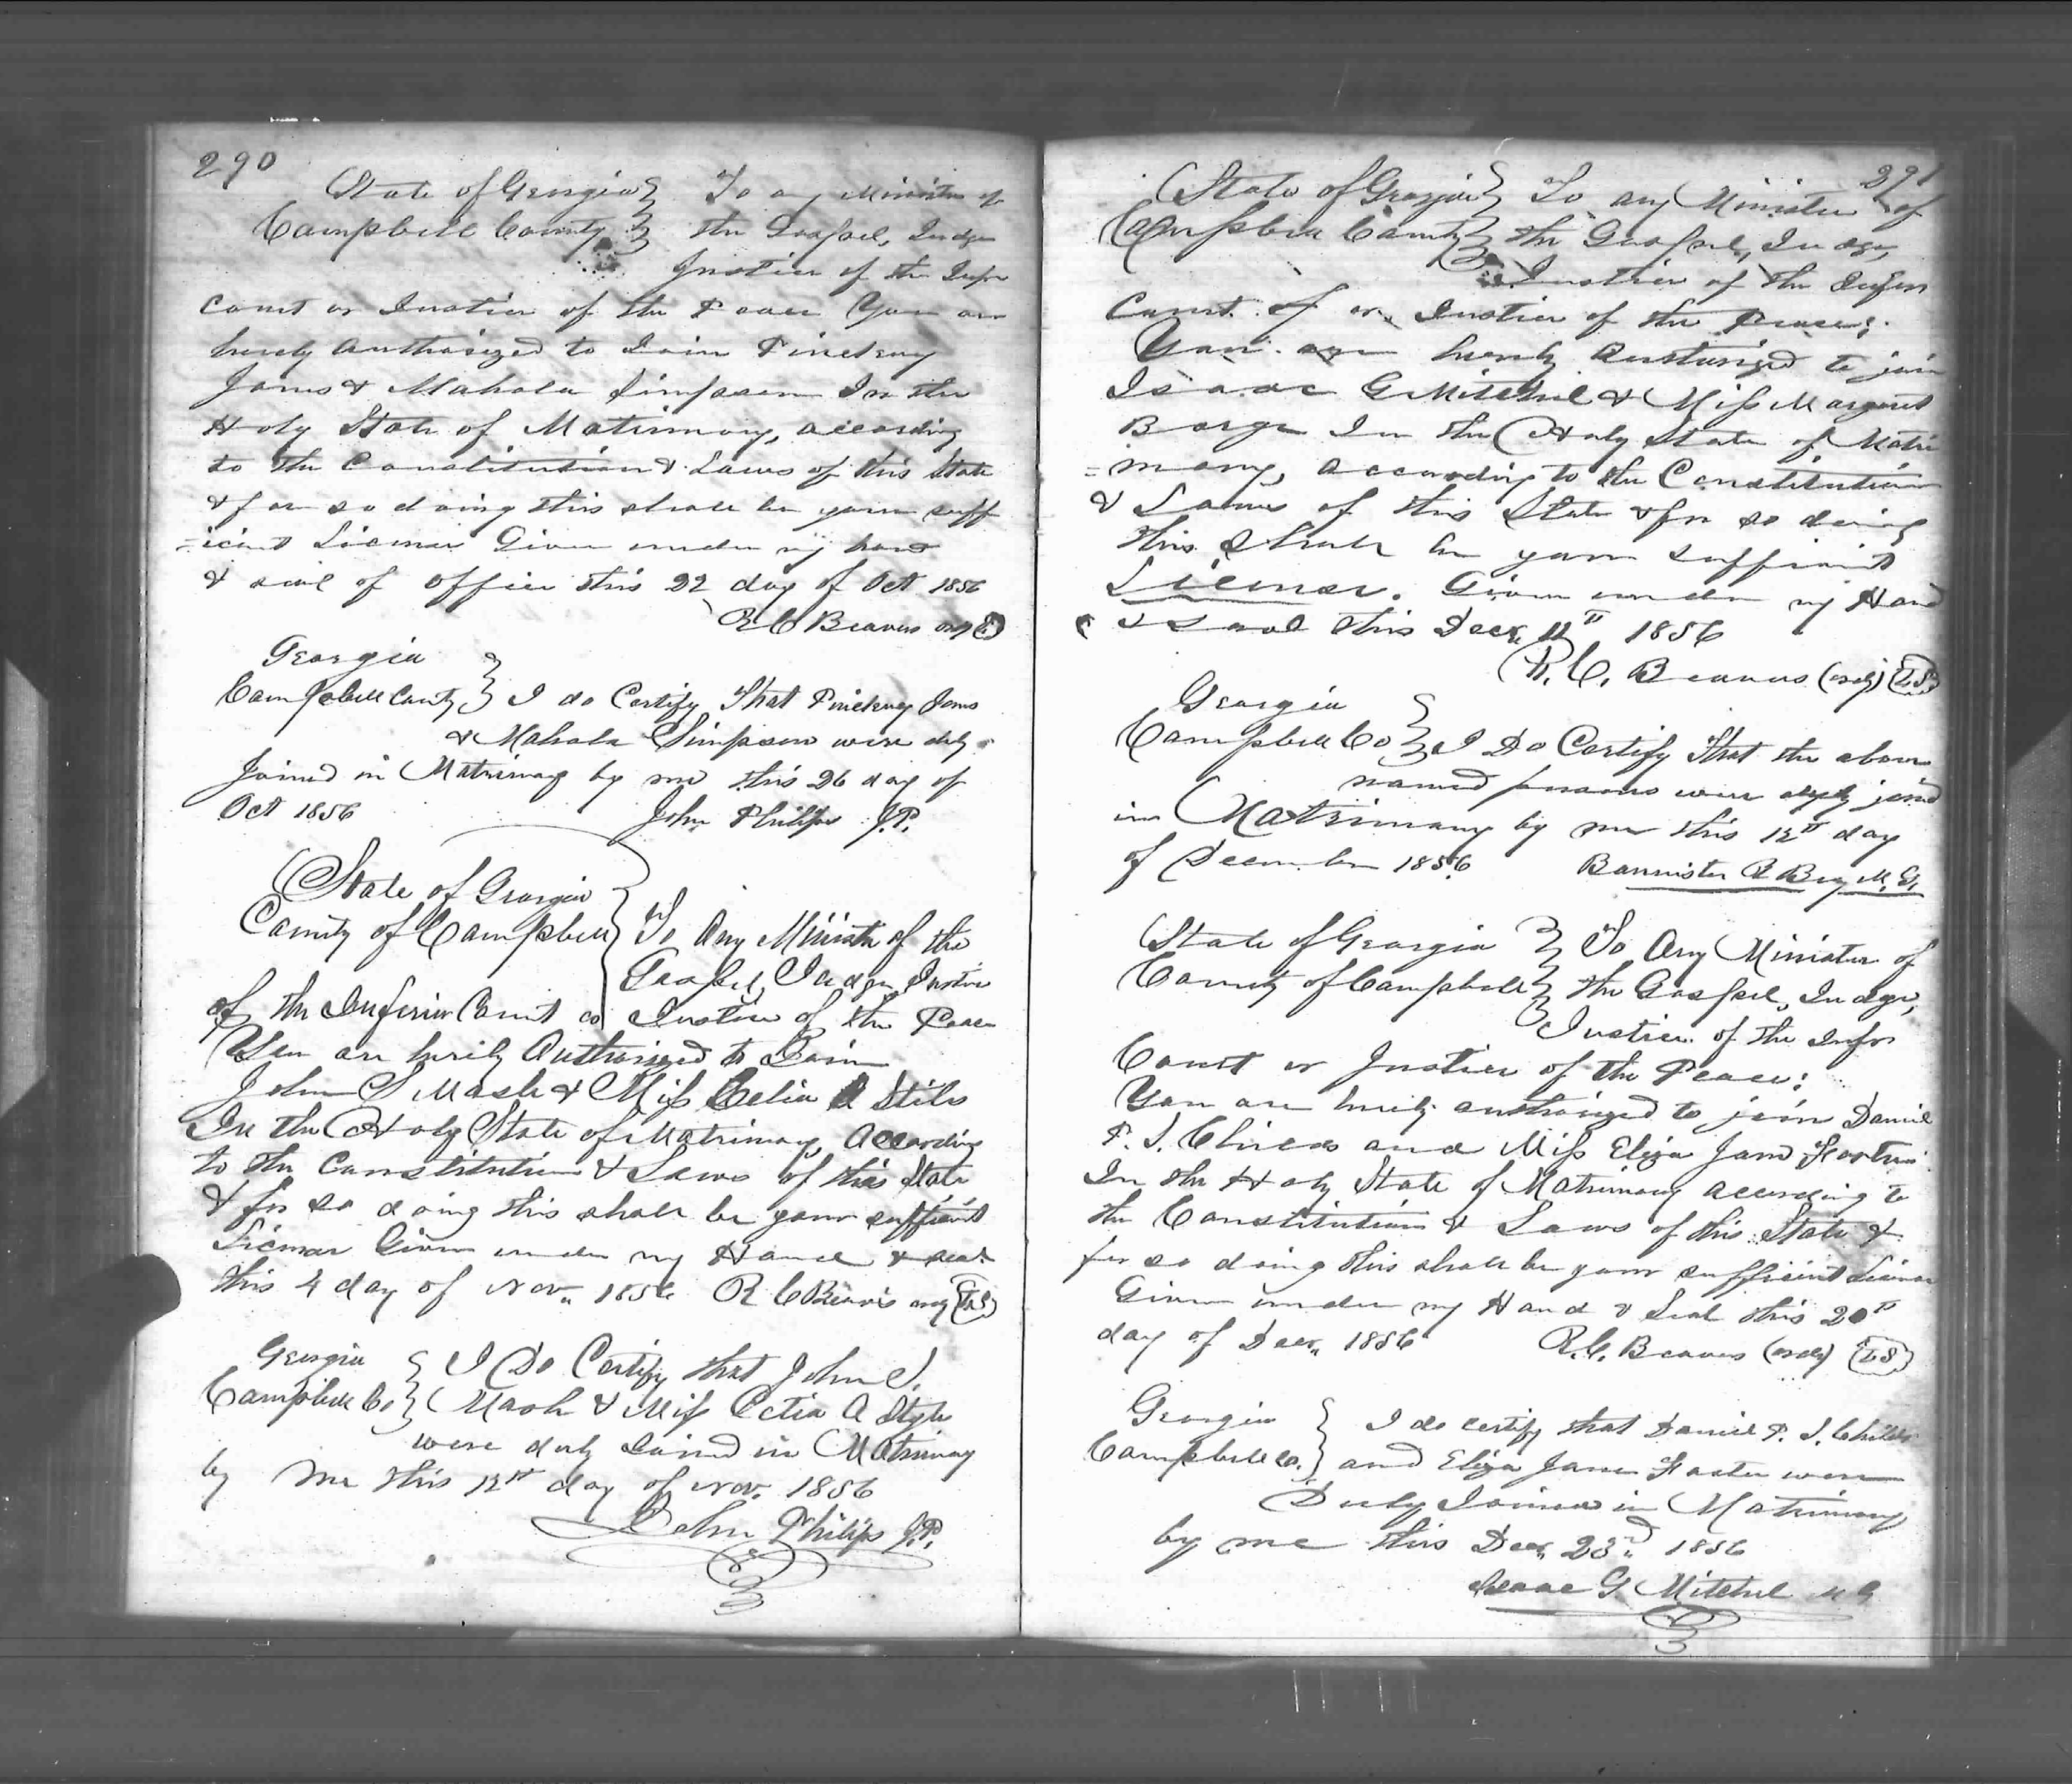 290
State of Georgia } To any Minister of
Campbell County } the Gospel, Judge
Justice of the Infr
court or Justice of the Peace You are
hereby authorized to Join Pinckney
Jones & Mahala Simpson In the
Holy State of Matrimony, according
to the Constitution & Laws of this State
& for so doing this shall be your suff
=icient License Given under my hand
& seal of office this 22 day of Oct 1856
R C Beavers ordy LS
Georgia
Campbell County } I do Certify That Pinckney Jones
& Mahala Simpson were duly
Joined in Matrimony by me this 26 day of
Oct 1856 John Philips J.P.
State of Georgia
County of Campbell } To Any Minister of the
Gospel, Judge, Justice
of the Inferior Court or Justice of the Peace
You are hereby Authorized to Join
John S Mash & Miss Celia A Stils
In the Holy State of Matrimony, According
to the Constitution & Laws of this State
& for so doing this shall be your sufficient
License Given under my Hand & seal
this 4 day of Nov,, 1856 R C Beavers ordy LS
Georgia } I Do Certify that John S.
Campbell Co } Mash & Miss Celia A Style
were duly Joined in Matrimony
by me this 12th day of Nov. 1856
John Philips J.P.
291
State of Georgia } To any Minister of
Campbell County } the Gospel, Judge,
Justice of the Infer
Court of or Justice of the Peace;
You are hereby Autherized to join
Isaac G Mitchel & Miss Margaret
Barge In the Holy State of Matri
=mony, according to the Constitution
& Laws of this State & for so doing
this shall be your sufficient
License. Given under my Hand
& Seal this Decr,, 11th 1856
R. C. Beavers (ordy) LS
Georgia
Campbell Co } I Do Certify That the above
named persons were duly joined
in Matrimony by me this 12th day
of December 1856 Bannister R Bray M.G.
State of Georgia } To Any Minister of
County of Campbell } the Gospel, Judge,
Justice of the Infr
Court or Justice of the Peace:
You are hereby authorized to join Daniel
P. S. Childs and Miss Eliza Jane Foster
In the Holy State of Matrimony according to
the Constitution & Laws of this State &
for so doing this shall be your sufficient License
Given under my Hand & Seal this 20th
day of Decr,, 1856 R.C. Beavers (ordy) LS
Georgia } I do certify that Daniel P. S. Childs
Campbell Co. } and Eliza Jane Foster were
Duly Joined in Matrimony
by me this Decr,, 23rd,, 1856
Isaac G. Mitchel M G